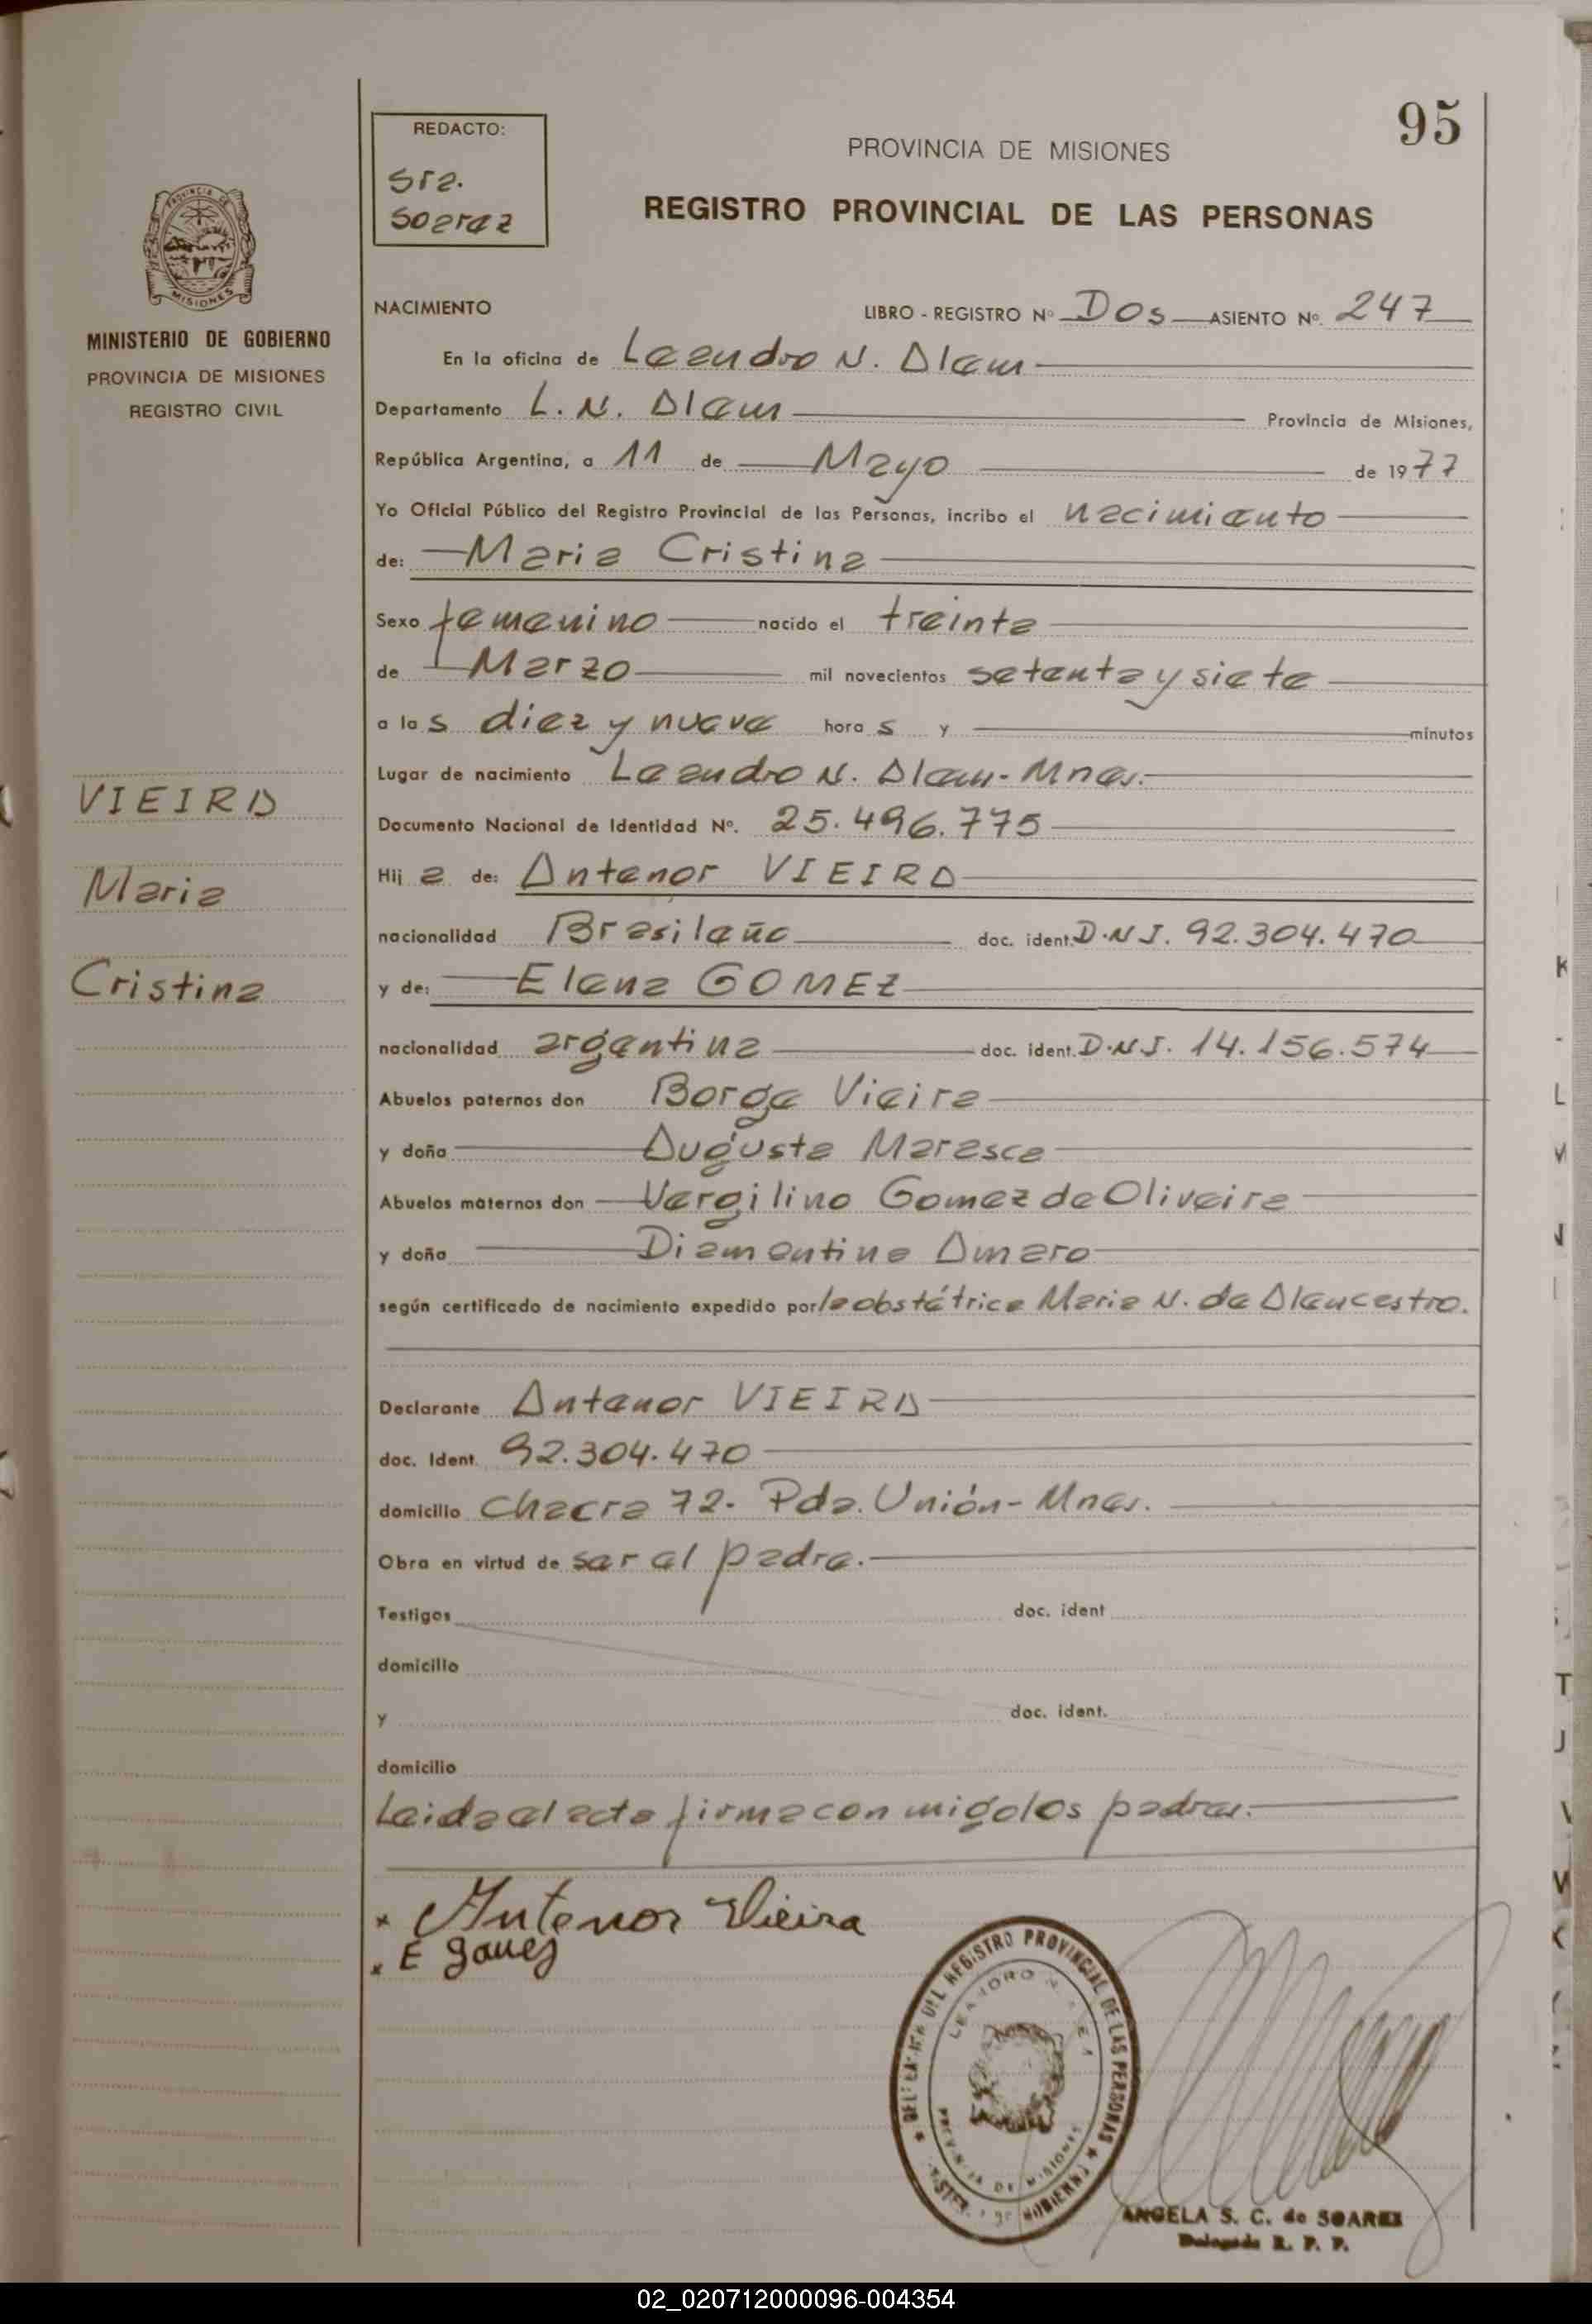 95
REDACTO:
Sra.
Soarez
PROVINCIA DE MISIONES
REGISTRO PROVINCIAL DE LAS PERSONAS
PROVINCIA DE
MISIONES
MINISTERIO DE GOBIERNO
PROVINCIA DE MISIONES
REGISTRO CIVIL
NACIMIENTO LIBRO - REGISTRO Nº Dos ASIENTO Nº. 247
En la oficina de Leandro N. Alem
Departamento L. N. Alem Provincia de Misiones,
República Argentina, a 11 de Mayo de 1977
Yo Oficial Público del Registro Provincial de las Personas, incribo el nacimiento
de: Maria Cristina
Sexo femenino nacido el treinta
de Marzo mil novecientos setenta y siete
a las diez y nueve horas y minutos
Lugar de nacimiento Leandro N. Alem - Mnes.
Documento Nacional de Identidad Nº. 25.496.775
Hija de: Antenor VIEIRA
nacionalidad Brasileño doc. ident. D.N.I. 92.304.470
y de: Elena GOMEZ
nacionalidad argentina doc. ident. D.N.I. 14.156.574
Abuelos paternos don Borge Vieira
y doña Augusta Maresca
Abuelos maternos don Vergilino Gomez de Oliveira
y doña Diamantina Amaro
según certificado de nacimiento expedido por la obstétrica Maria N. de Alencestro.
Declarante Antenor VIEIRA
doc. Ident. 92.304.470
domicilio Chacra 72. Pda. Unión - Mnes.
Obra en virtud de ser el padre.
Testigos doc. ident
domicilio
y doc. ident.
domicilio
Leida el acta firma con migo los padres.
VIEIRA
Maria
Cristina
x Antenor Vieira
x E gomez
REGISTRO PROVINCIAL DE LAS PERSONAS
LEANDRO N. ALEM
PROVINCIA DE MISIONES
ANGELA S. C. de SOAREZ
Delegada R. P. P.
02_020712000096-004354